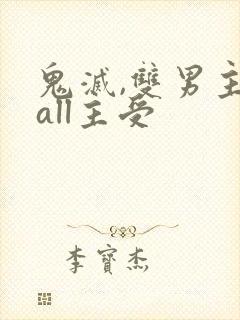 鬼滅,雙男主
all主受
李寶杰